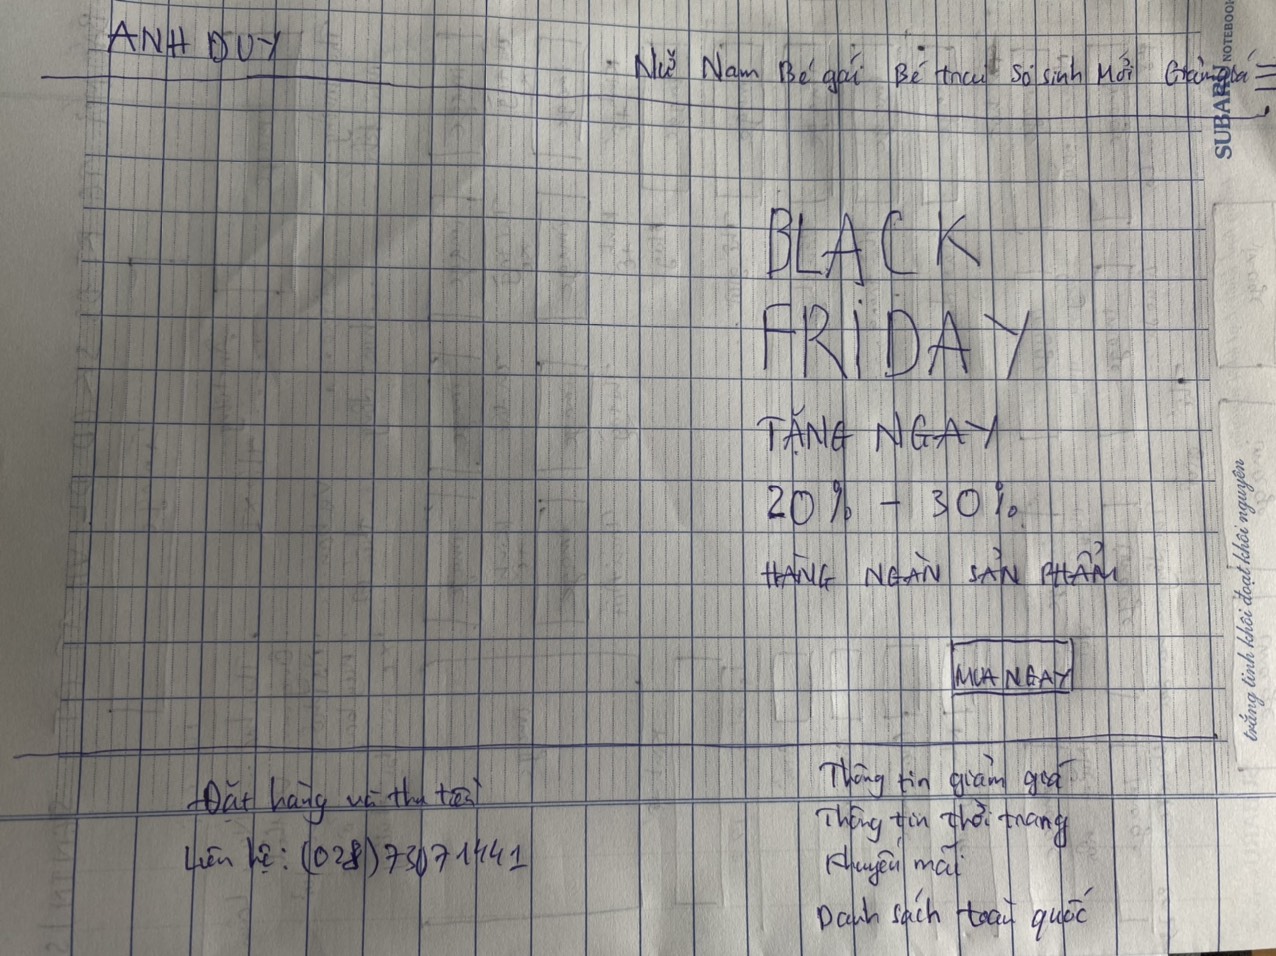 ANH DUY
Nữ Nam Bé gái Bé trai Sơ sinh Mới Giảm giá
SUBARU NOTEBOOK
BLACK
FRIDAY
TẶNG NGAY
20% - 30%
HÀNG NGÀN SẢN PHẨM
MUA NGAY
trắng tinh khôi đoạt khôi nguyên
Đặt hàng và thu tiền
Liên hệ: (028)73071441
Thông tin giảm giá
Thông tin thời trang
Khuyến mãi
Danh sách toàn quốc